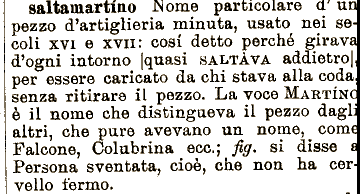 saltamartíno Nome particolare d'un
pezzo d'artiglieria minuta, usato nei se-
coli XVI e XVII: cosí detto perché girava
d'ogni intorno |quasi SALTÀVA addietro|,
per essere caricato da chi stava alla coda,
senza ritirare il pezzo. La voce MARTÍNO
è il nome che distingueva il pezzo dagli
altri, che pure avevano un nome, come
Falcone, Colubrina ecc.; fig. si disse a
Persona sventata, cioè, che non ha cer-
vello fermo.